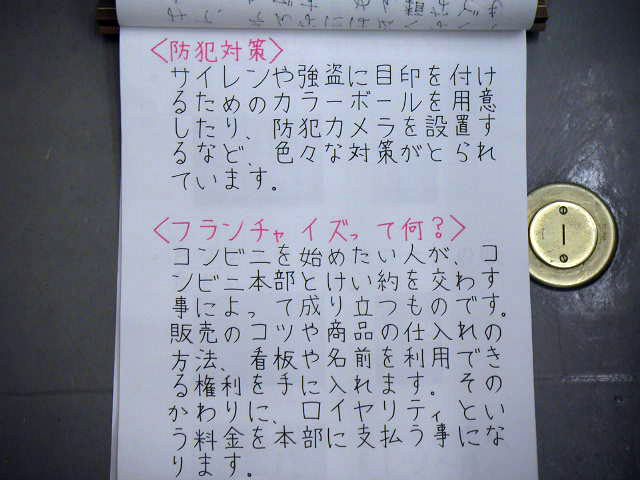 〈防犯対策〉
サイレンや強盗に目印を付け
るためのカラーボールを用意
したり、防犯カメラを設置す
るなど、色々な対策がとられ
ています。
〈フランチャイズって何?〉
コンビニを始めたい人が、コ
ンビニ本部とけい約を交わす
事によって成り立つものです。
販売のコツや商品の仕入れの
方法、看板や名前を利用でき
る権利を手に入れます。その
かわりに、ロイヤリティとい
う料金を本部に支払う事にな
ります。